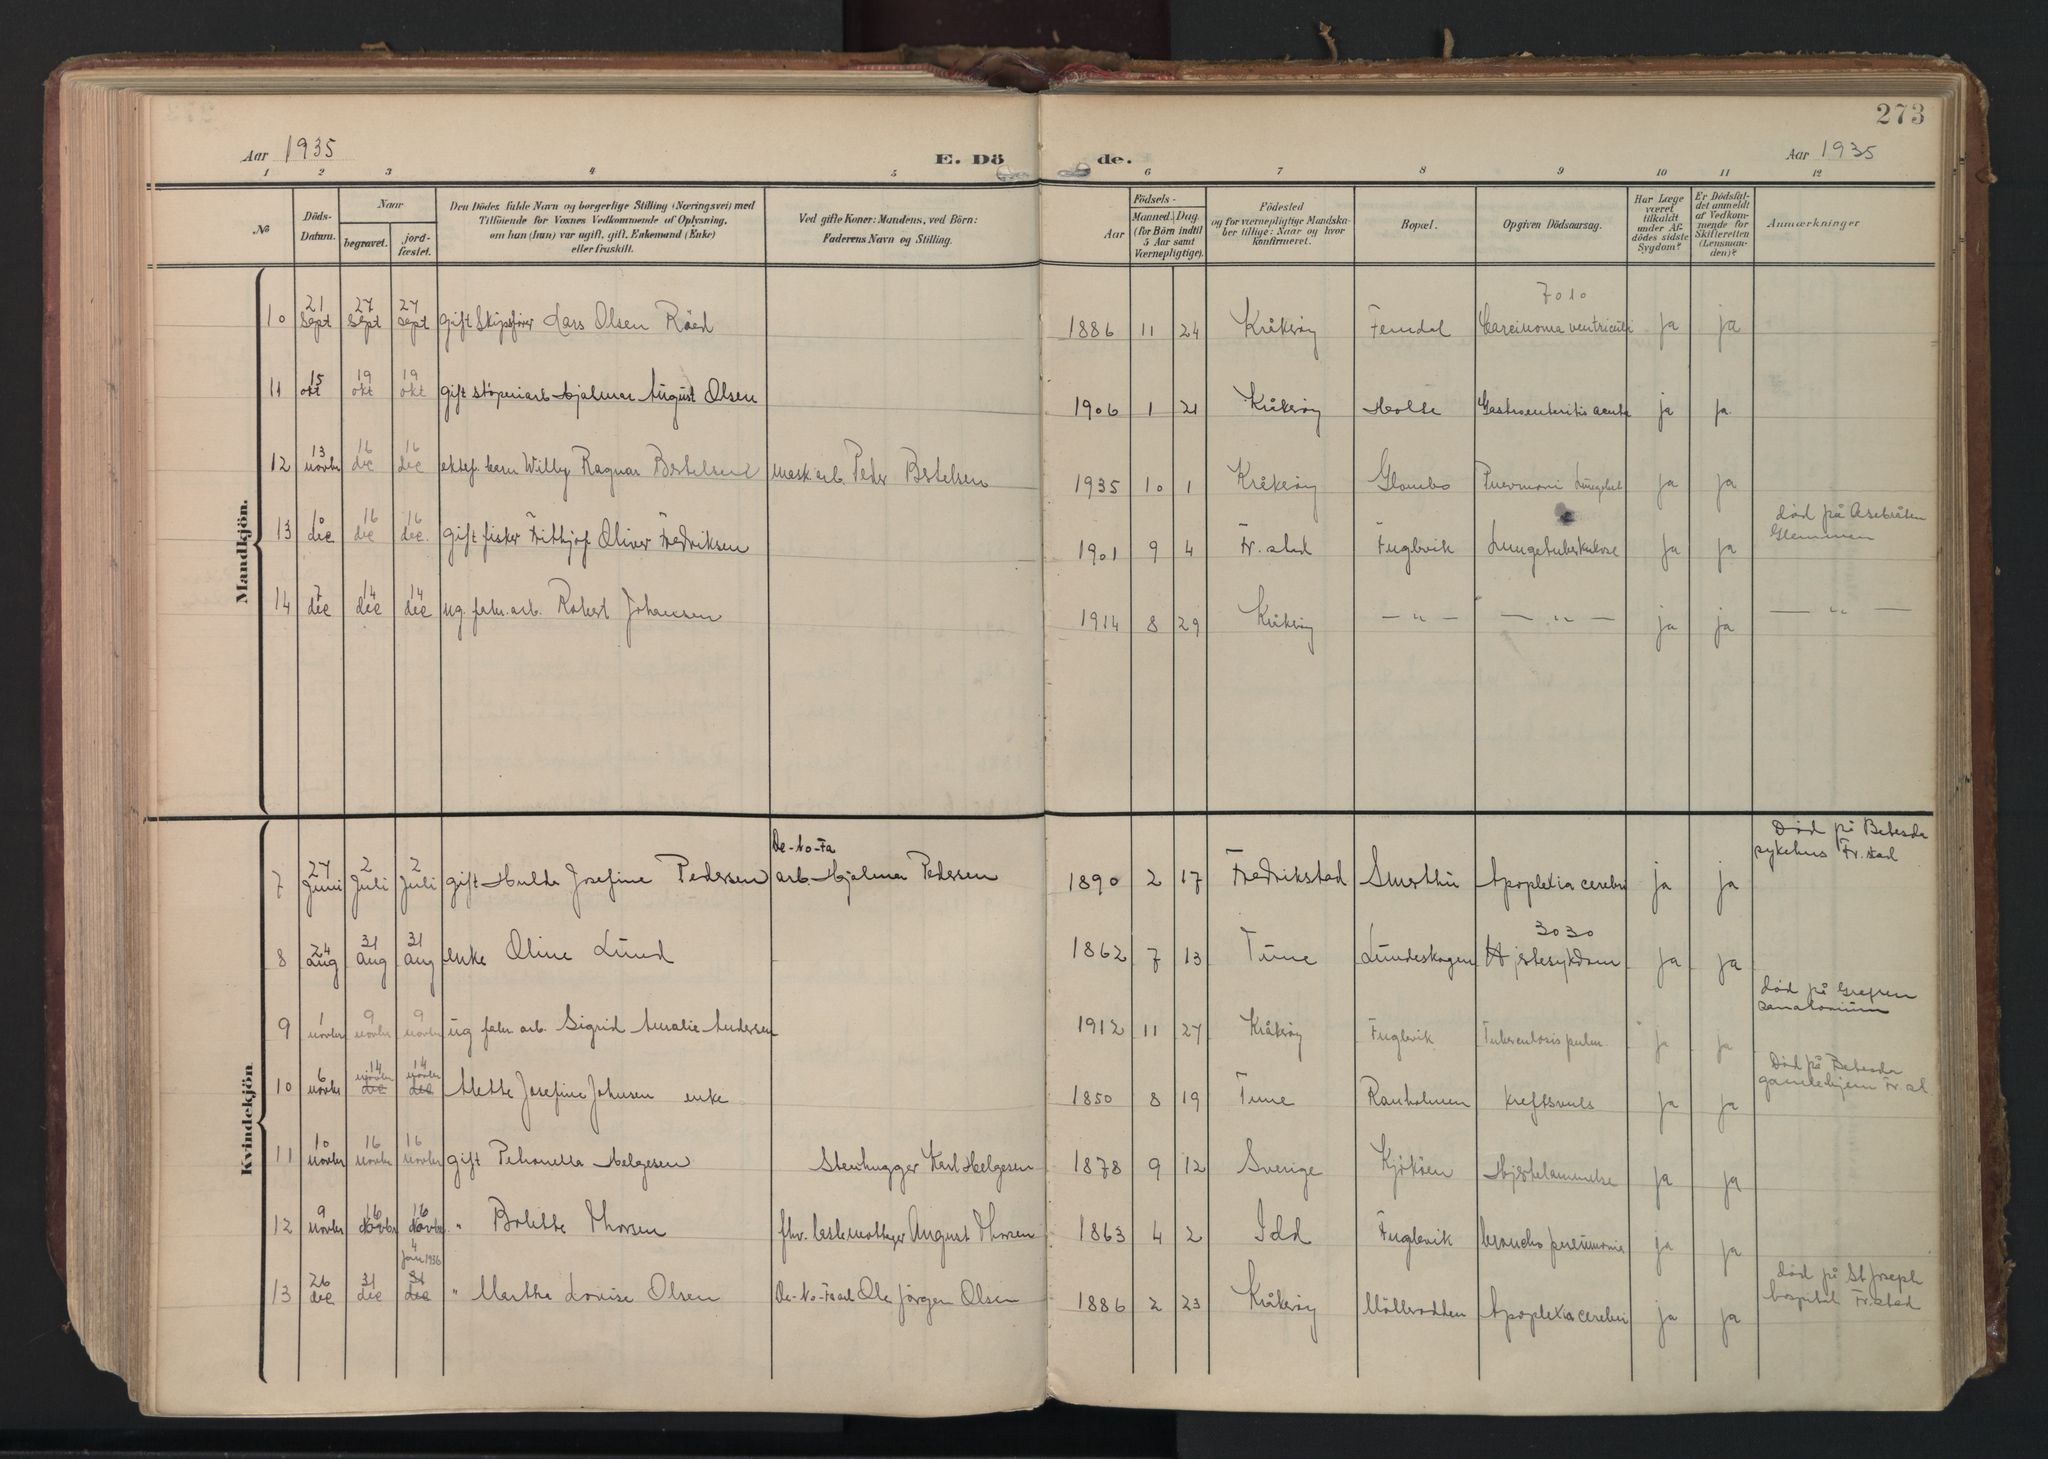 273
Aar 1935 E. Dö de. Aar 1935
1 2 3 4 5 6 7 8 9 10 11 12
№
Döds-Datum.
Naar
begravet.
jordfæstet.
Den Dödes fulde Navn og borgerlige Stilling (Næringsvei) med
Tilföiende for Voxnes Vedkommende af Oplysning,
om han (hun) var ugift, gift, Enkemand (Enke)
eller fraskilt.
Ved gifte Koner: Mandens, ved Börn:
Faderens Navn og Stilling.
Födsels-
Aar
Maaned. Dag.
(for Börn indtil
5 Aar samt
Værnepligtige).
Födested
og for værnepligtige Mandskaber tillige: Naar og hvor
konfirmeret.
Bopæl.
Opgiven Dödsaarsag.
Har Læge
været
tilkaldt
under Afdödes sidste
Sygdom?
Er Dödsfaldet anmeldt
af Vedkommende for
Skifteretten
(Lensmanden)?
Anmærkninger
Mandkjön.
7010
10 21 sept 27 sept 27 sept gift Skipsfører Lars Olsen Röed 1886 11 24 Kråkeröy Femdal Carcinoma ventriculi ja ja
11 15 okt 19 okt 19 okt gift støperiarb Hjalmar August Olsen 1906 1 21 Kråkeröy Holte Gastroenteritis acuta ja ja
12 13 novbr 16 dec 16 dec ektef. barn Willy Ragnar Bertelsen mask arb. Peder Bertelsen 1935 10 1 Kråkeröy Glombo Pnevmoni ja ja
13 10 dec 16 dec 16 dec. gift fisker Frithjof Oliver Fredriksen 1901 9 4 Fr. stad Fuglevik Lungetuberkulose ja ja død på Asebråten Glemmen
14 7 dec 14 dec 14 dec ug. fabr. arb. Robert Johansen 1914 8 29 Kråkeröy — " — — " — ja ja — " —
Kvindekjön
7 27 Juni 2 Juli 2 Juli gift Hulda Josefine Pedersen De-No-Fa arb. Hjalmar Pedersen 1890 2 17 Fredrikstad Smerthu Apoplexia cerebri ja ja Död på Betesda sykehus Fr. stad
3030
8 24 aug 31 aug 31 aug enke Oline Lund 1862 7 13 Tune Lundeskogen Hjertesykdom ja ja
9 1 novbr 9 novbr 9 novbr ug fabr arb. Sigrid Amalie Andersen 1912 11 27 Kråkeröy Fuglevik Tuberculosis pulm. ja ja død på Grefsen sanatorium
10 6 novbr 14 novbr dec 14 novbr dec Mette Josefine Johnsen enke 1850 8 19 Tune Rauholmen Kreftsvuls ja ja Död på Betesda gamlehjem Fr. st
11 10 novbr 16 novbr 16 novbr gift Petronella Helgesen Stenhugger Karl Helgesen 1878 9 12 Sverige Kjøköen Hjertelammelse ja ja
12 9 novbr 16 novbr 16 novbr " Bolette Thorsen fhv. lastemottager August Thorsen 1863 4 2 Idd Fuglevik broncho pneumonia ja ja
13 26 dec 31 dec 4 Jan 1936 31 dec " Martha Lovise Olsen De-No-Fa arb Ole Jörgen Olsen 1886 2 23 Kråkeröy Möllerodden Apoplexia cerebri ja ja død på St Joseph hospital Fr. stad